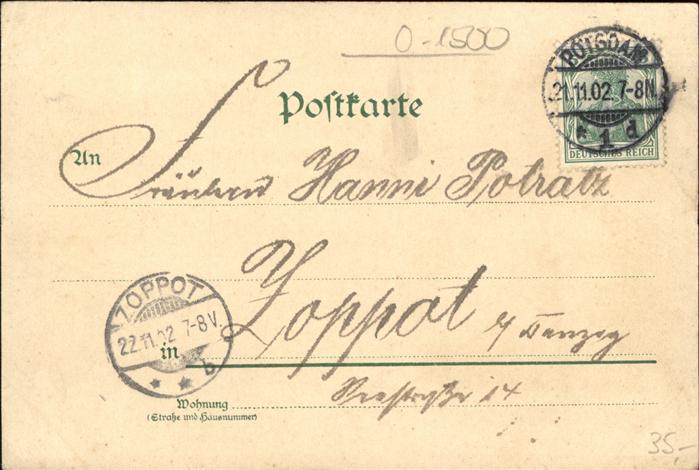 0-1500
POTSDAM
21.11.02. 7-8N.
* 1 d
DEUTSCHES REICH
Postkarte
An
Fräulein Hanni Potratz
Zoppot b/ Danzig
ZOPPOT
22.11.02 7-8V.
* * b
in
Seestraße 14
Wohnung
(Straße und Hausnummer)
35.-